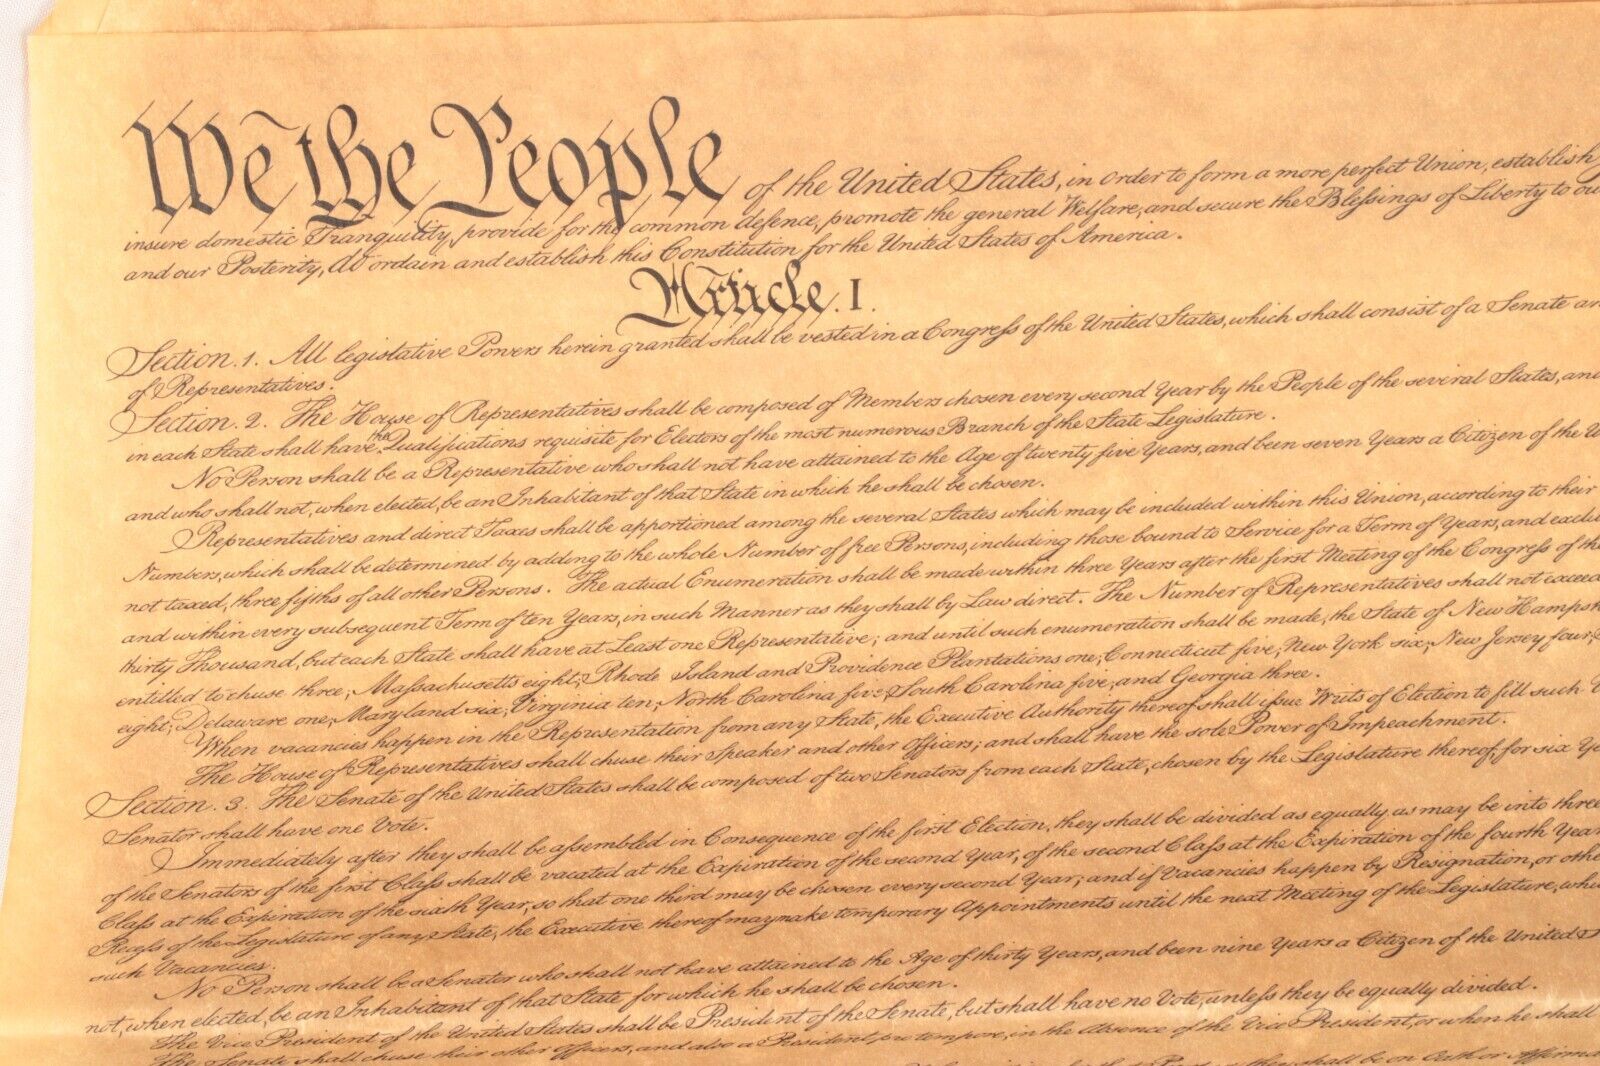 We the People of the United States, in order to form a more perfect Union, establish
insure domestic Tranquility, provide for the common defence, promote the general Welfare, and secure the Blessings of Liberty to our
and our Posterity, do ordain and establish this Constitution for the United States of America.
Article. I.
Section. 1. All legislative Powers herein granted shall be vested in a Congress of the United States, which shall consist of a Senate an
of Representatives.
Section. 2. The House of Representatives shall be composed of Members chosen every second Year by the People of the several States, and
in each State shall have the Qualifications requisite for Electors of the most numerous Branch of the State Legislature.
No Person shall be a Representative who shall not have attained to the Age of twenty five Years, and been seven Years a Citizen of the U
and who shall not, when elected, be an Inhabitant of that State in which he shall be chosen.
Representatives and direct Taxes shall be apportioned among the several States which may be included within this Union, according to their
Numbers, which shall be determined by adding to the whole Number of free Persons, including those bound to Service for a Term of Years, and exclu
not taxed, three fifths of all other Persons. The actual Enumeration shall be made within three Years after the first Meeting of the Congress of the
and within every subsequent Term of ten Years, in such Manner as they shall by Law direct. The Number of Representatives shall not exceed
thirty Thousand, but each State shall have at Least one Representative; and until such enumeration shall be made, the State of New Hampsh
entitled to chuse three, Massachusetts eight, Rhode Island and Providence Plantations one, Connecticut five, New York six, New Jersey four,
eight, Delaware one, Maryland six, Virginia ten, North Carolina five, South Carolina five, and Georgia three.
When vacancies happen in the Representation from any State, the Executive Authority thereof shall issue Writs of Election to fill such
The House of Representatives shall chuse their Speaker and other Officers; and shall have the sole Power of Impeachment.
Section. 3. The Senate of the United States shall be composed of two Senators from each State, chosen by the Legislature thereof, for six Ye
Senator shall have one Vote.
Immediately after they shall be assembled in Consequence of the first Election, they shall be divided as equally as may be into three
of the Senators of the first Class shall be vacated at the Expiration of the second Year, of the second Class at the Expiration of the fourth Year
Class at the Expiration of the sixth Year, so that one third may be chosen every second Year; and if Vacancies happen by Resignation, or othe
Recess of the Legislature of any State, the Executive thereof may make temporary Appointments until the next Meeting of the Legislature, whic
such Vacancies.
No Person shall be a Senator who shall not have attained to the Age of thirty Years, and been nine Years a Citizen of the United
not, when elected, be an Inhabitant of that State for which he shall be chosen.
The Vice President of the United States shall be President of the Senate, but shall have no Vote, unless they be equally divided.
The Senate shall chuse their other Officers, and also a President pro tempore, in the Absence of the Vice President, or when he shall
they shall be on Oath or Affirma